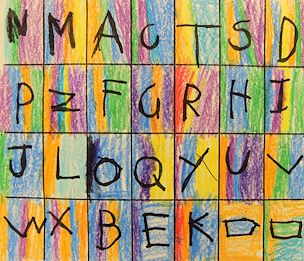 N M A C T S D
P Z F G R H I
J L O Q Y U V
W X B E K